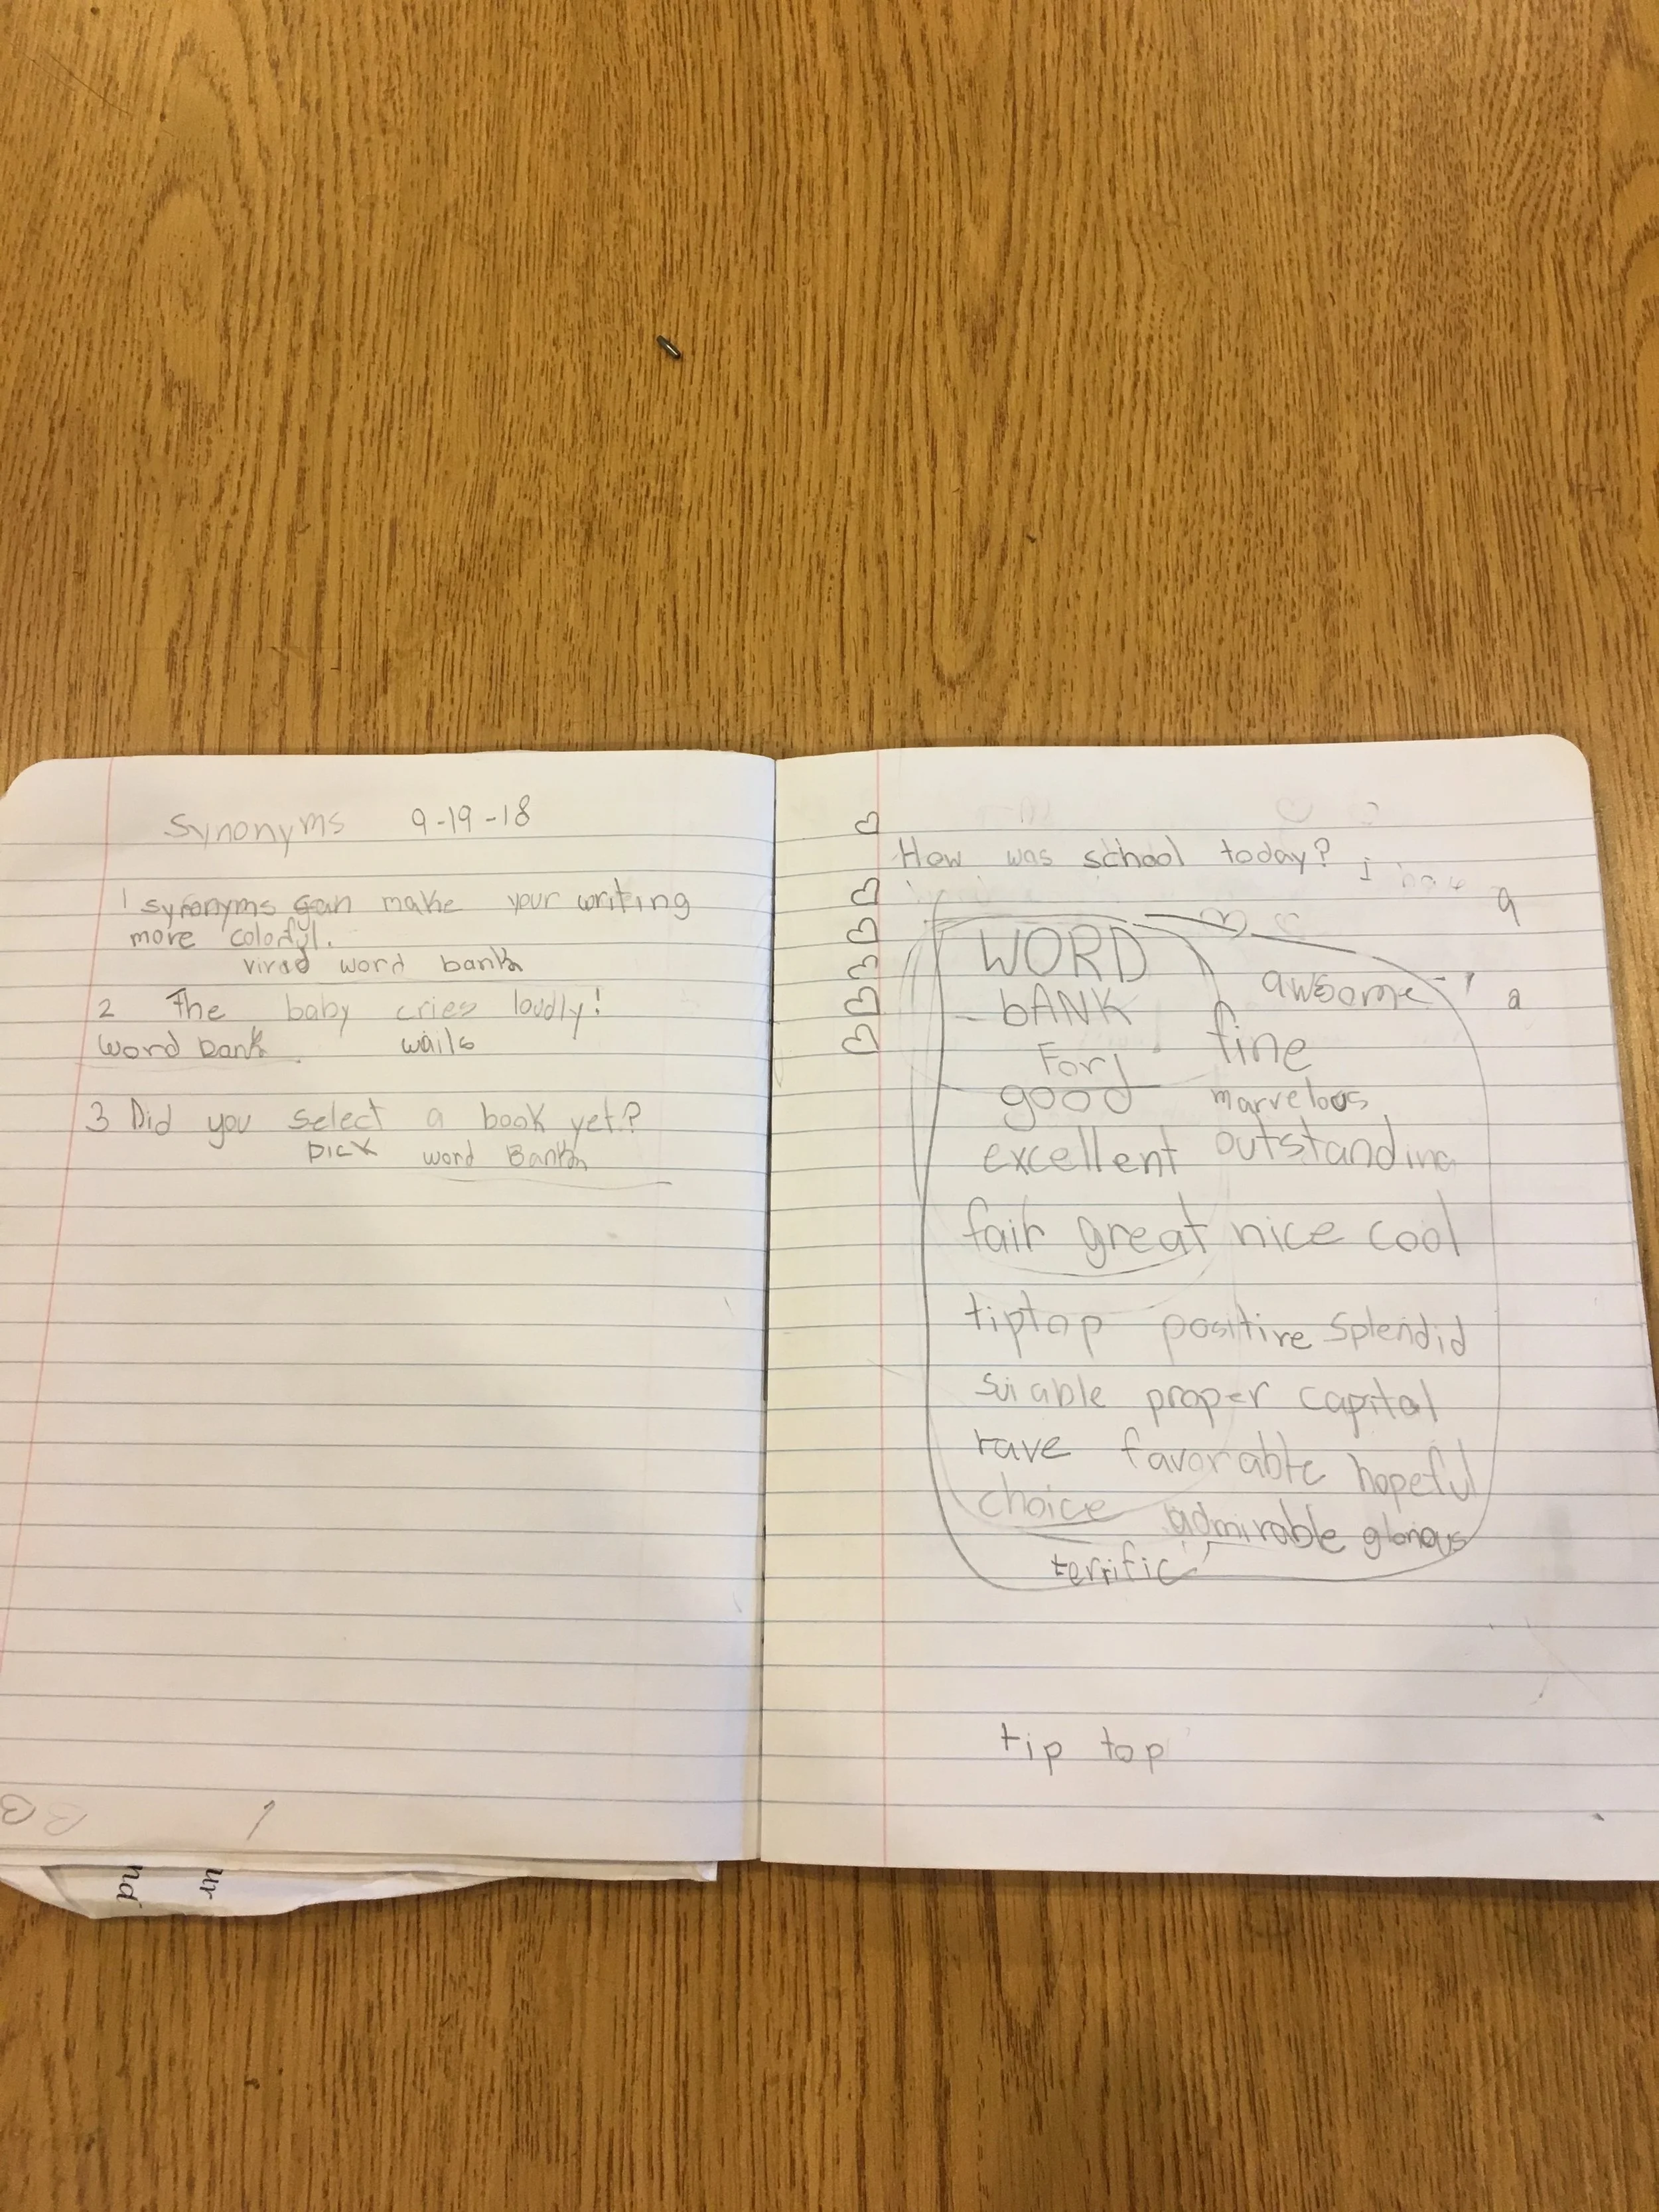 Synonyms 9-19-18
1 synonyms can make your writing
more colorful.
virad word bank
2 The baby cries loudly!
word bank wails
3 Did you select a book yet?
pick word Bank
How was school today? I
a
WORD
bANK
awsome
a
For
fine
good
marvelous
excellent outstanding
fair great nice cool
tiptop positive splendid
suiable proper capital
rave favorable hopeful
choice admirable glorious
terrific
tip top
ur
nd